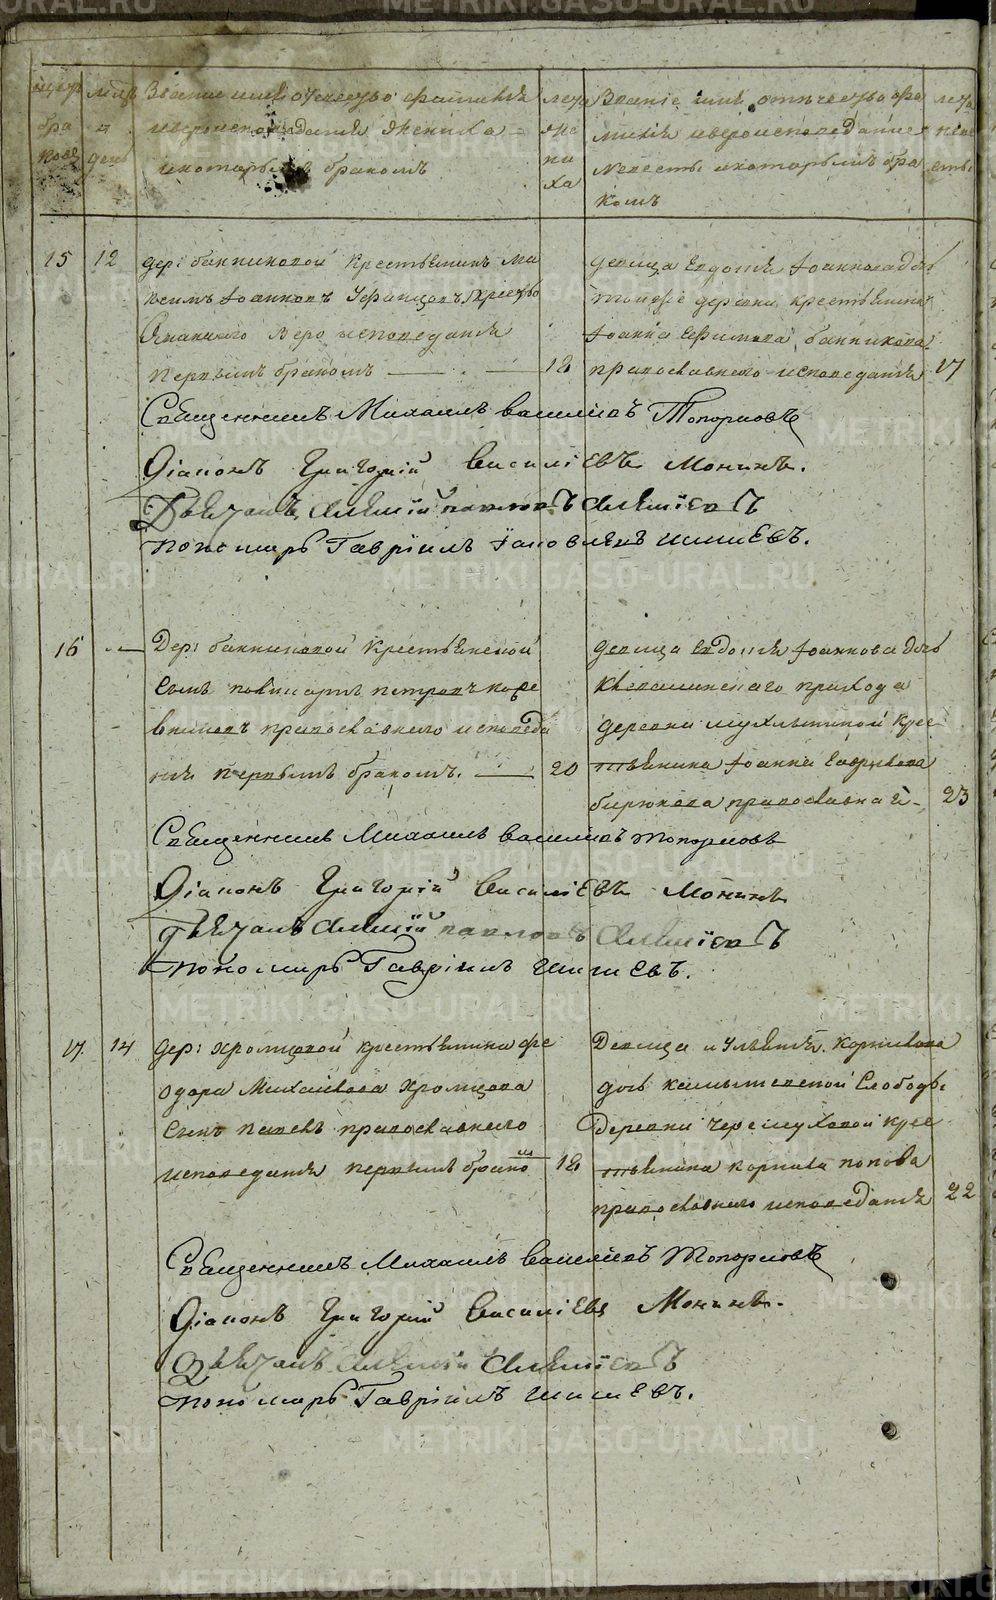 Званіе имя отчество фамилія
и вероисповеданія жениха
и которымъ бракомъ
лета
же
ни
ха
Званіе имя отчество фа
милія и вероисповеданіе
невесты и которымъ бра
комъ
лета
неве
сты
15 12 дер: банниковой крестьянинъ Ма
ксимъ Іоанновъ
вероисповеданія
первымъ бракомъ 18
девица Евдокія Іоаннова дочь
тойже деревни крестьянина
Іоанна Ефимова банникова
православнаго исповеданія 17
Священникъ Михаилъ Васильевъ Топорковъ
Діаконъ Григорій Василіевъ Монинъ.
Дьячокъ Алексій Павловъ Алексіевъ
Пономарь Гавріилъ Іаковлевъ Шишевъ.
16 Дер: банниковой крестьянской
сынъ петровъ коре
вниковъ православнаго исповеда
нія первымъ бракомъ. 20
девица Евдокія Іоаннова дочь
прихода
деревни крес
тьянина Іоанна
бирюкова православная 23
Священникъ Михаилъ Васильевъ Топорковъ
Діаконъ Григорій Василіевъ Монинъ
Дьячокъ Алексій Павловъ Алексіевъ
Пономарь Гавріилъ Шишевъ.
17. 14 дер: Хромцовой крестьянина Фе
одора Михайлова Хромцова
сынъ Павелъ православнаго
исповеданія первымъ бракомъ 18
Девица Іуліанія Корнилова
дочь камышевской Слободы
Деревни Черемуховой крес
тьянина Корнила попова
православнаго исповеданія 22
Священникъ Михаилъ Васильевъ Топорковъ
Діаконъ Григорій Василіевъ Монинъ.
Дьячокъ Алексій Алексіевъ
Пономарь Гавріилъ Шишевъ.
METRIKI.GASO-URAL.RU